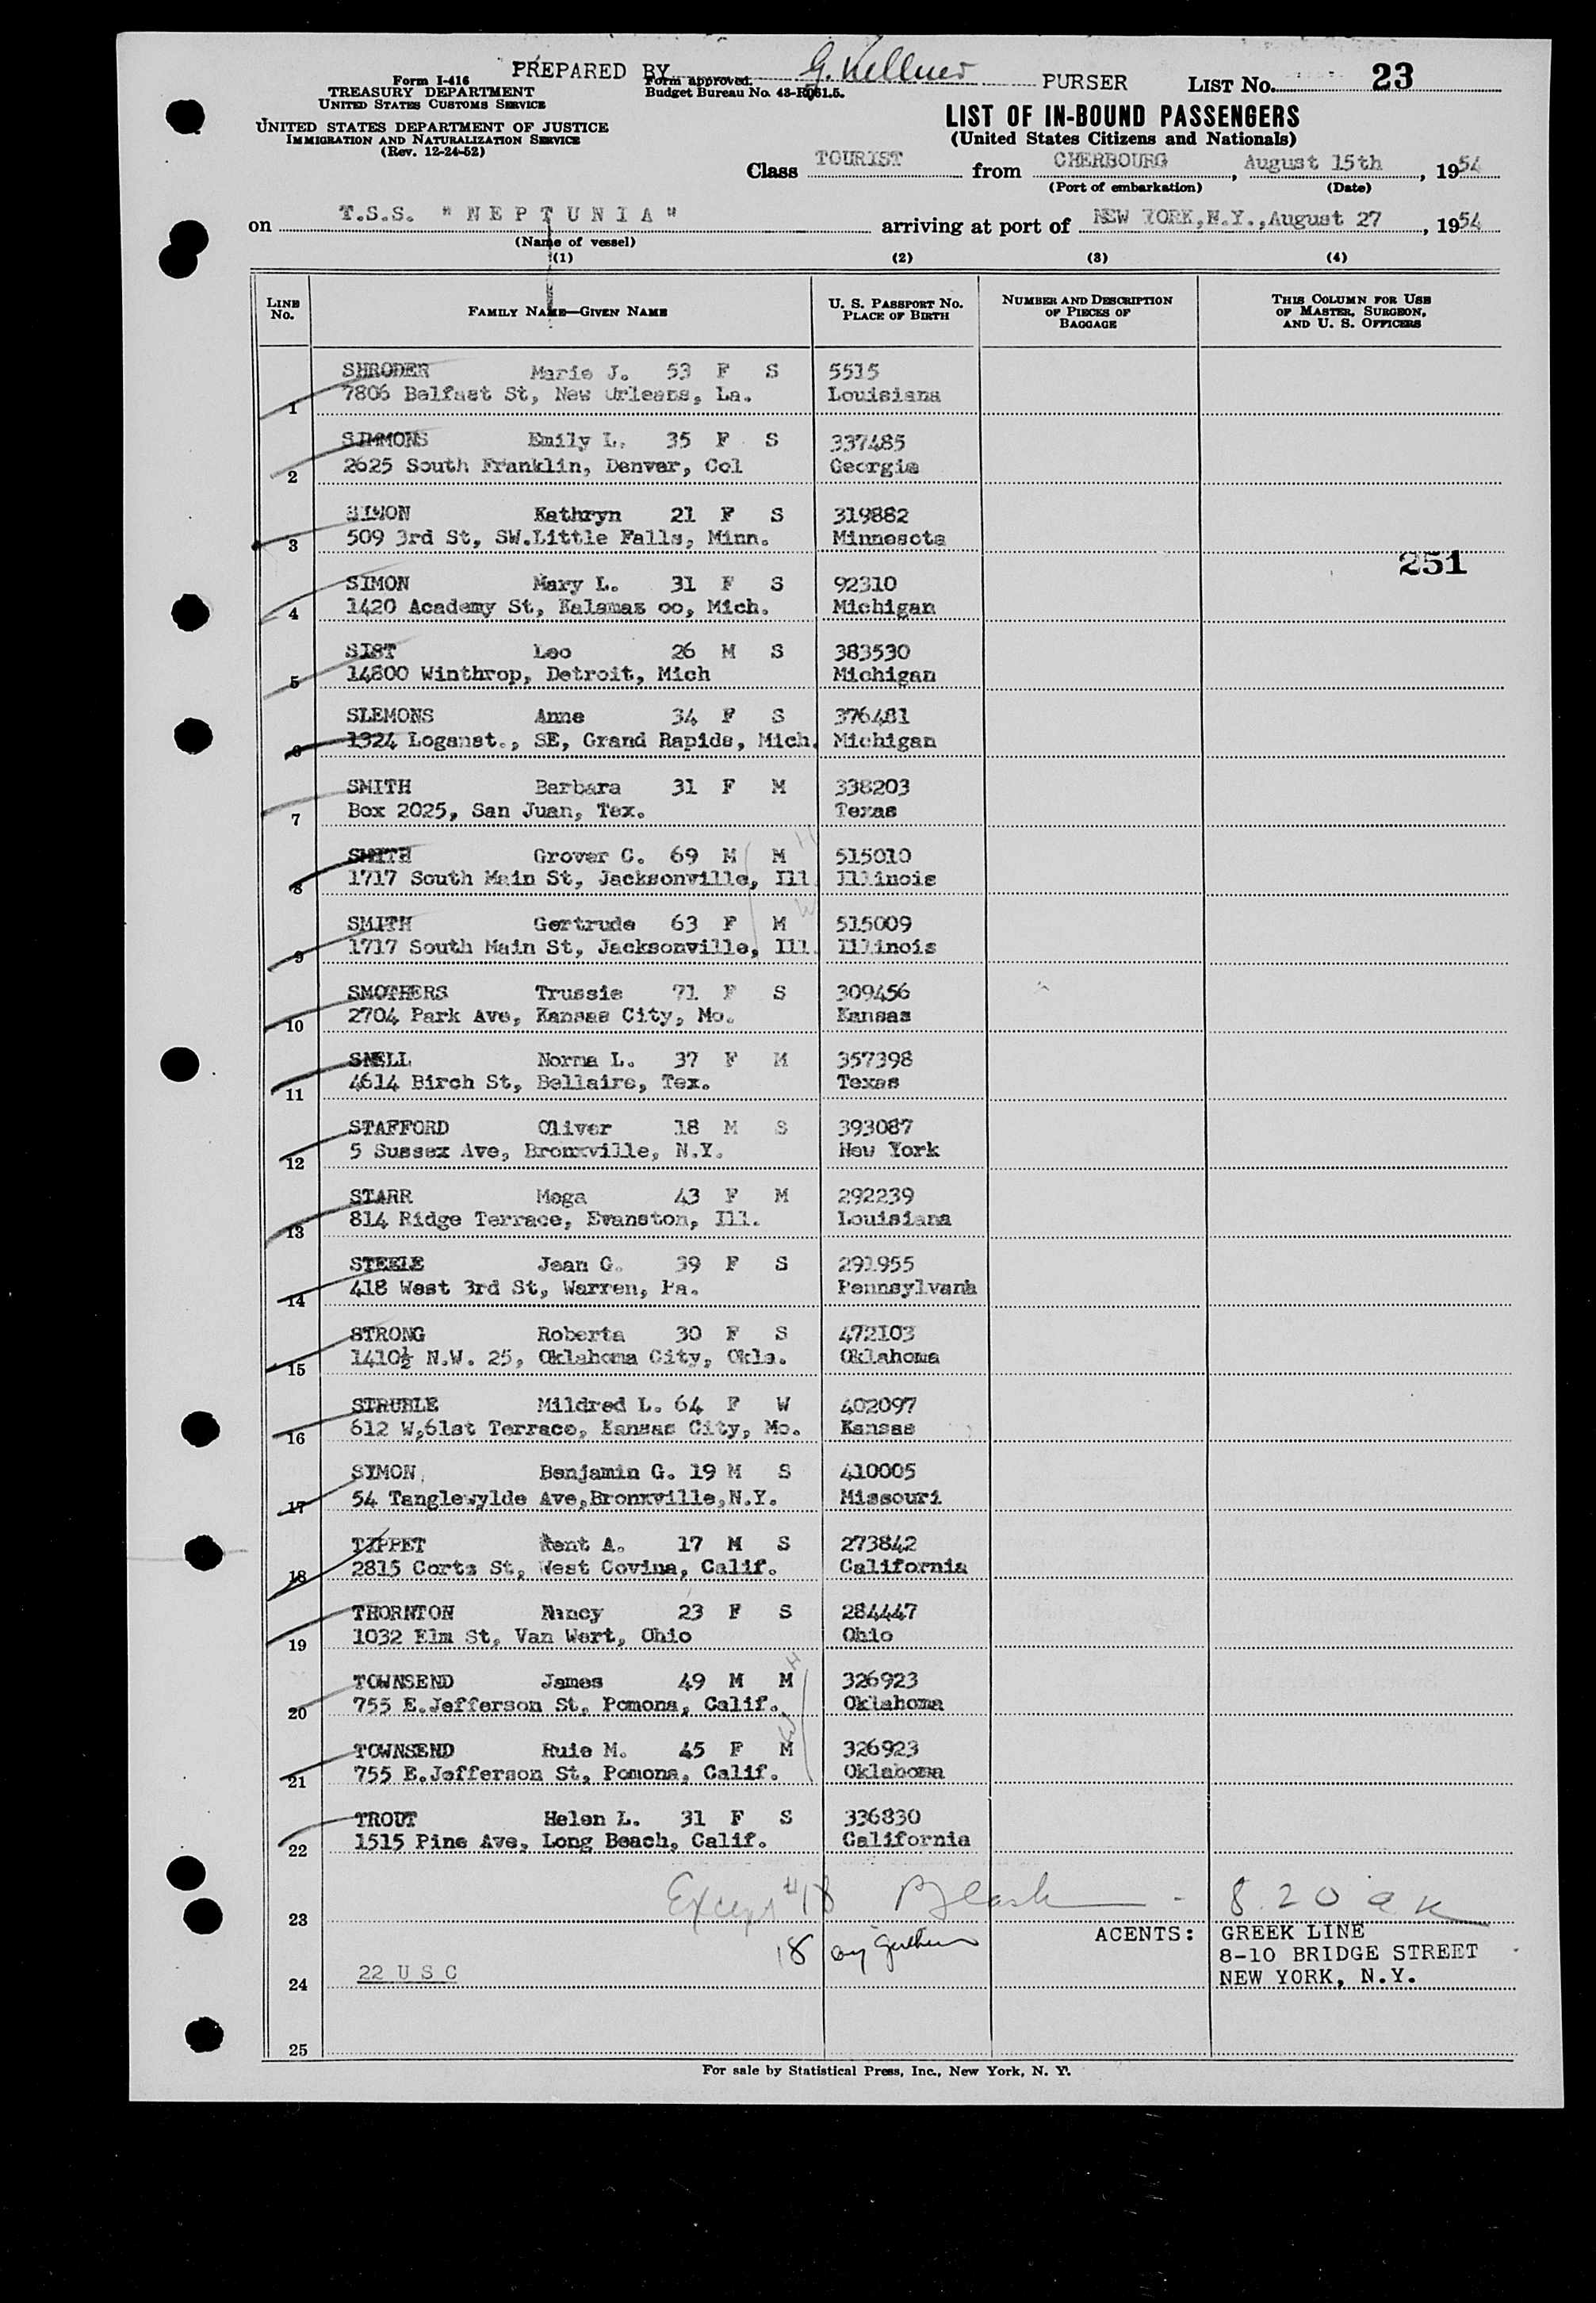 PREPARED BY G. Kellner PURSER
Form I-416
TREASURY DEPARTMENT
UNITED STATES CUSTOMS SERVICE
Form approved.
Budget Bureau No. 43-R061.5.
LIST No. 23
UNITED STATES DEPARTMENT OF JUSTICE
IMMIGRATION AND NATURALIZATION SERVICE
(Rev. 12-24-52)
LIST OF IN-BOUND PASSENGERS
(United States Citizens and Nationals)
Class TOURIST from CHERBOURG, August 15th, 1954
(Port of embarkation) (Date)
on T.S.S. "NEPTUNIA" arriving at port of NEW YORK, N.Y., August 27, 1954
(Name of vessel)
(1) (2) (3) (4)
LINE No. FAMILY NAME—GIVEN NAME U. S. PASSPORT No. PLACE OF BIRTH NUMBER AND DESCRIPTION OF PIECES OF BAGGAGE THIS COLUMN FOR USE OF MASTER, SURGEON, AND U. S. OFFICERS
SHRODER Marie J. 53 F S 5515
1 7806 Belfast St, New Orleans, La. Louisiana
SIMMONS Emily L. 35 F S 337485
2 2625 South Franklin, Denver, Col Georgia
SIMON Kathryn 21 F S 319882
3 509 3rd St, SW.Little Falls, Minn. Minnesota
251
SIMON Mary L. 31 F S 92310
4 1420 Academy St, Kalamas oo, Mich. Michigan
SIST Leo 26 M S 383530
5 14800 Winthrop, Detroit, Mich Michigan
SLEMONS Anne 34 F S 376481
6 1324 Loganst., SE, Grand Rapids, Mich. Michigan
SMITH Barbara 31 F M 338203
7 Box 2025, San Juan, Tex. Texas
SMITH Grover C. 69 M M H 515010
8 1717 South Main St, Jacksonville, Ill. Illinois
SMITH Gertrude 63 F M W 515009
9 1717 South Main St, Jacksonville, Ill. Illinois
SMOTHERS Trussie 71 F S 309456
10 2704 Park Ave, Kansas City, Mo. Kansas
SNELL Norma L. 37 F M 357398
11 4614 Birch St, Bellaire, Tex. Texas
STAFFORD Oliver 18 M S 393087
12 5 Sussex Ave, Bronxville, N.Y. New York
STARR Moga 43 F M 292239
13 814 Ridge Terrace, Evanston, Ill. Louisiana
STEELE Jean G. 39 F S 291955
14 418 West 3rd St, Warren, Pa. Pennsylvana
STRONG Roberta 30 F S 472103
15 1410½ N.W. 25, Oklahoma City, Okla. Oklahoma
STRUBLE Mildred L. 64 F W 402097
16 612 W,61st Terrace, Kansas City, Mo. Kansas
SYMON Benjamin G. 19 M S 410005
17 54 Tanglewylde Ave,Bronxville,N.Y. Missouri
TIPPET Kent A. 17 M S 273842
18 2815 Cortz St, West Covina, Calif. California
THORNTON Nancy 23 F S 284447
19 1032 Elm St, Van Wert, Ohio Ohio
TOWNSEND James 49 M M H 326923
20 755 E.Jefferson St, Pomona, Calif. Oklahoma
TOWNSEND Ruie M. 45 F M W 326923
21 755 E.Jefferson St, Pomona, Calif. Oklahoma
TROUT Helen L. 31 F S 336830
22 1515 Pine Ave, Long Beach, Calif. California
23 Except #18 8.20
18
ACENTS: GREEK LINE
8-10 BRIDGE STREET
24 22 U S C NEW YORK, N.Y.
25
For sale by Statistical Press, Inc., New York, N. Y.